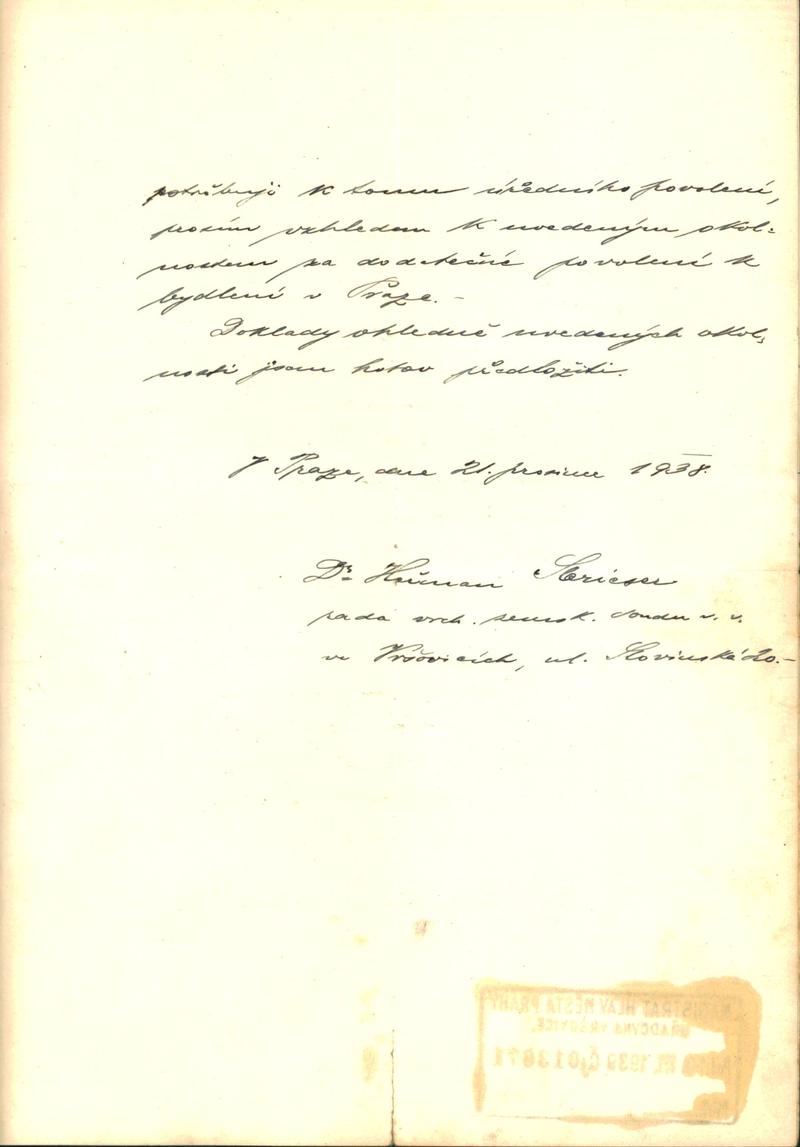 potřebuji k tomu úředního povolení,
prosím vzhledem k uvedeným okol=
nostem za dodatečné povolení k
bydlení v Praze. –
Doklady ohledně uvedených okol=
ností jsem hotov předložiti.
V Praze, dne 21. prosince 1938.
Dr Heřman
rada vrch. zemsk. soudu v. v.
ve Vršovicích, ul. Slovinská 20.–
MAGISTRÁT HLAV. MĚSTA PRAHY
ÚŘADOVNA VRŠOVICE.
1939 Čj 013671